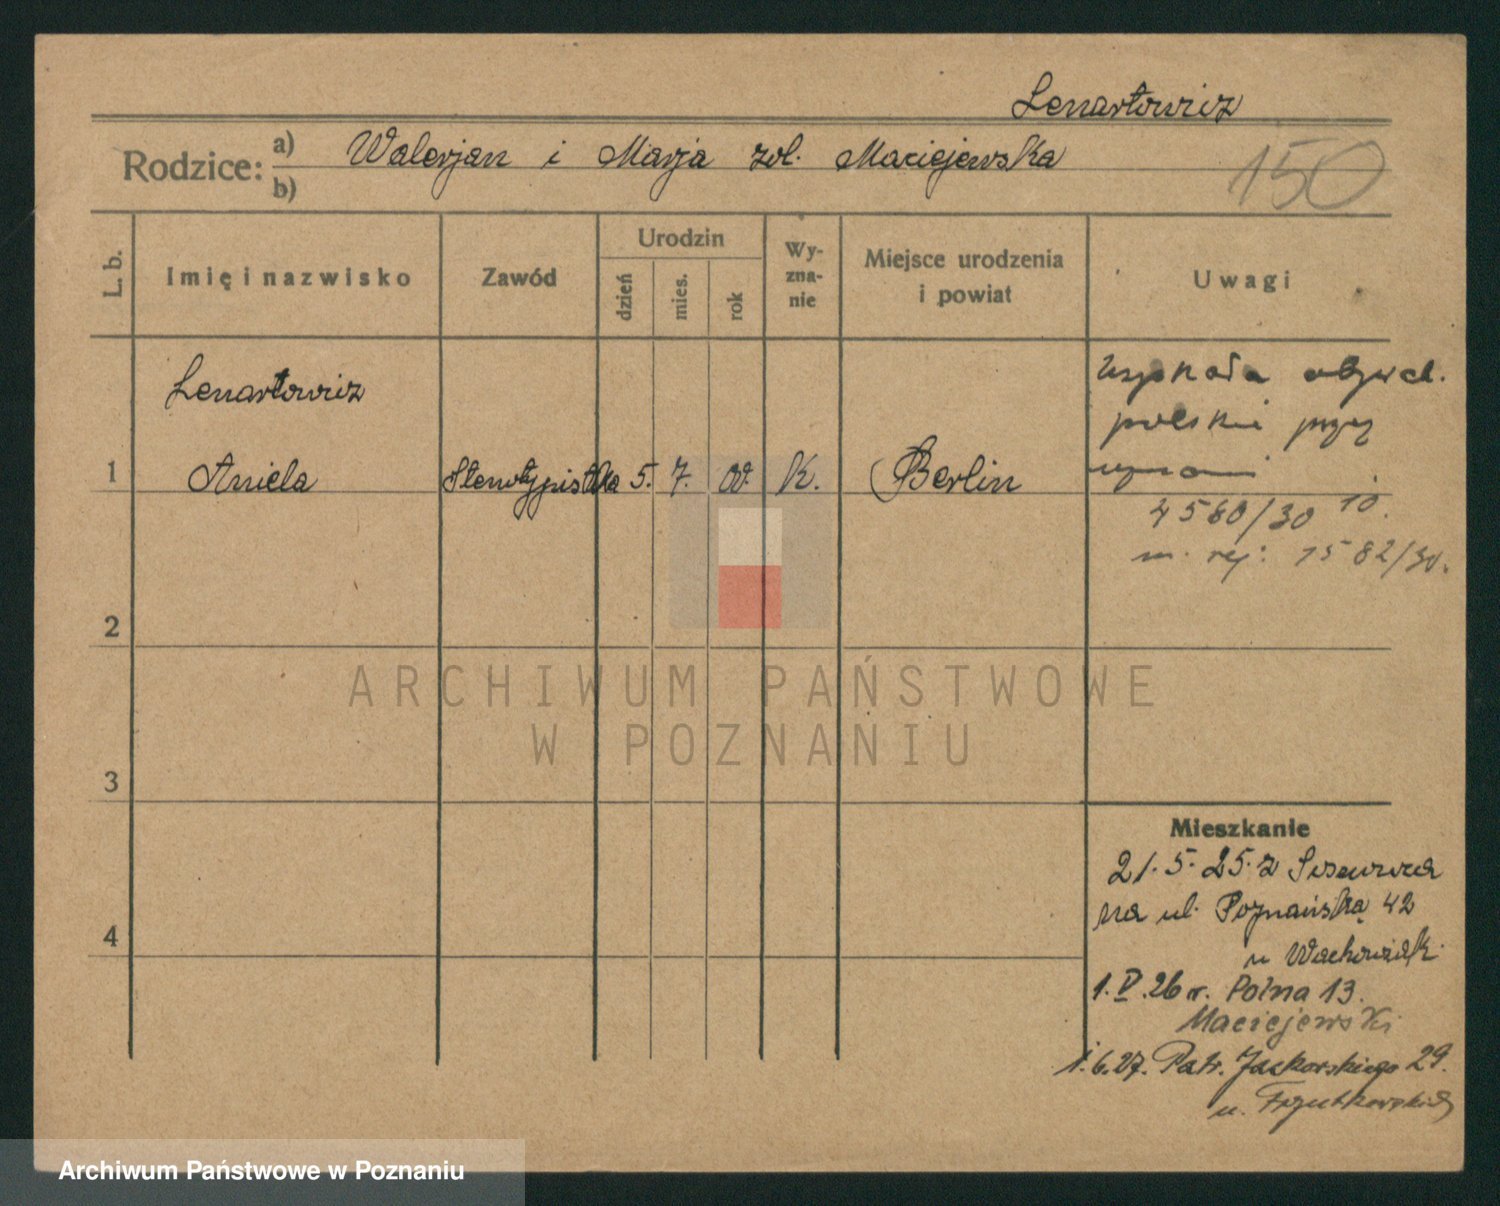 Lenartowicz
Rodzice: a) Walerjan i Marja zol. Maciejewska
b)
150
L. b.
Imię i nazwisko
Zawód
Urodzin
dzień
mies.
rok
Wy-
zna-
nie
Miejsce urodzenia
i powiat
Uwagi
Lenartowicz
1 Aniela Stenotypistka 5. 7. K. Berlin
obywat.
polskie przy
4580/30 10.
m. rej: 1582/30.
2
3
4
Mieszkanie
21.5.25. z
na ul. Poznańską 42
u Wachowiak
1.V.26 r. Polna 13.
Maciejewski
1.6.27. Patr. Jackowskiego 29.
u.
ARCHIWUM PAŃSTWOWE
W POZNANIU
Archiwum Państwowe w Poznaniu